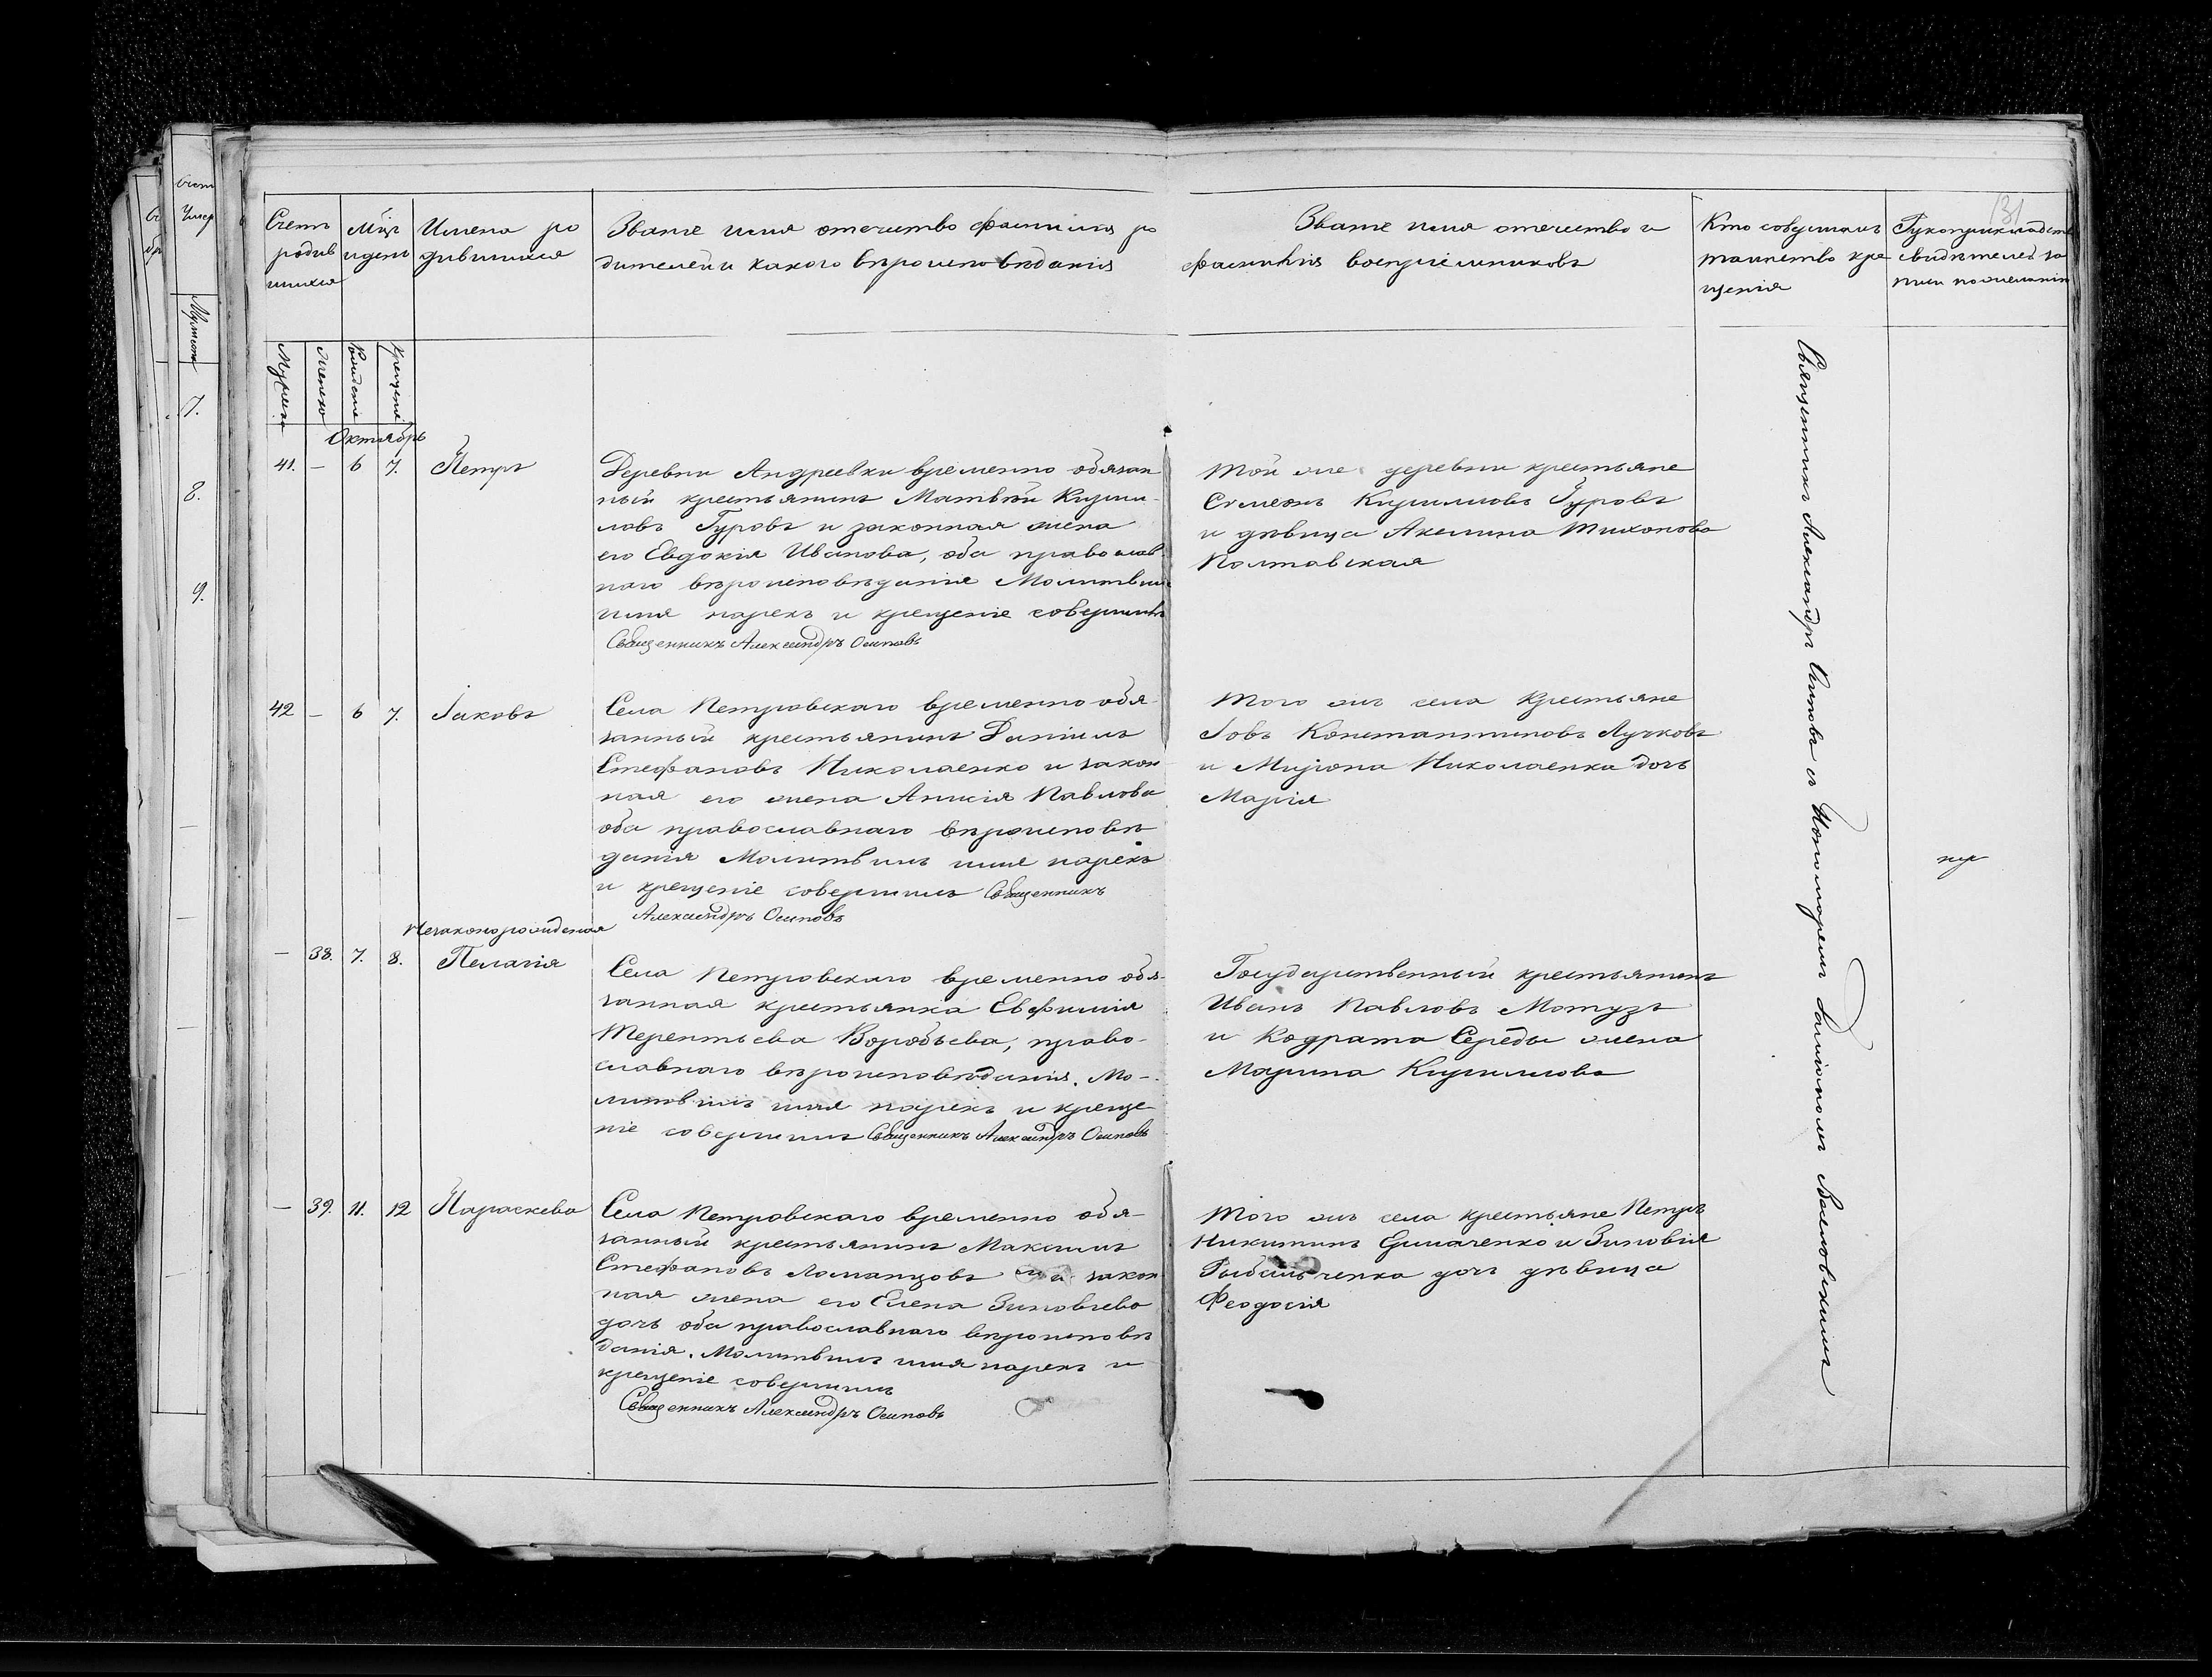 Счетъ родив шихся
Мѣц и день
Имена ро дившихся
Званіе имя отечество фамилія ро
дителей и какого вѣроисповѣданія
Званіе имя отечество и
фамилія воспріемниковъ
Кто совершалъ таинство кре щенія
Рукоприкладство свидѣтелей за писи по желанію
131
Мужеска
Женско
Рожденіе
Крещеніе
Октябрь
41. — 6 7. Петръ
Деревни Андреевки временно обязан
ный крестьянинъ Матвѣй Кирил-
ловъ Гуровъ и законная жена
его Евдокія Иванова, оба православ
наго вѣроисповѣданія Молитвилъ
имя нарекъ и крещеніе совершилъ
Священникъ Александръ Осиповъ
Той же деревни крестьяне
Семенъ Кирилловъ Гуровъ
и дѣвица Акилина Тихонова
Полтавская
42 — 6 7. Іаковъ
Села Петровскаго временно обя-
занный крестьянинъ Даніилъ
Стефановъ Николаенко и закон
ная его жена Анисія Павлова
оба православнаго вѣроисповѣ
данія Молитвилъ имя нарекъ
и крещеніе совершилъ Священникъ
Александръ Осиповъ
Того жъ села крестьяне
Іовъ Константиновъ Лучковъ
и Мирона Николаенка дочь
Марія
Незаконорожденая
— 38. 7. 8. Пелагія
Села Петровскаго временно обя-
занная крестьянка Евфимія
Терентьева Воробьева, право-
славнаго вѣроисповѣданія. Мо-
литвилъ имя нарекъ и креще
ніе совершилъ Священникъ Александръ Осиповъ
Государственный крестьянинъ
Иванъ Павловъ Мотузъ
и Кодрата Середы жена
Марина Кириллова
— 39. 11. 12 Параскева
Села Петровскаго временно обя-
занный крестьянинъ Максимъ
Стефановъ Ломанцовъ и закон
ная жена его Елена Зиновіева
дочь оба православнаго вѣроисповѣ
данія. Молитвилъ имя нарекъ и
крещеніе совершилъ
Священникъ Александръ Осиповъ
Того жъ села крестьяне Петръ
Никитинъ Ермаченко и Зиновія
Рыбальченка дочь дѣвица
Феодосія
Священникъ Александръ Осиповъ съ Пономаремъ
7.
8.
9.